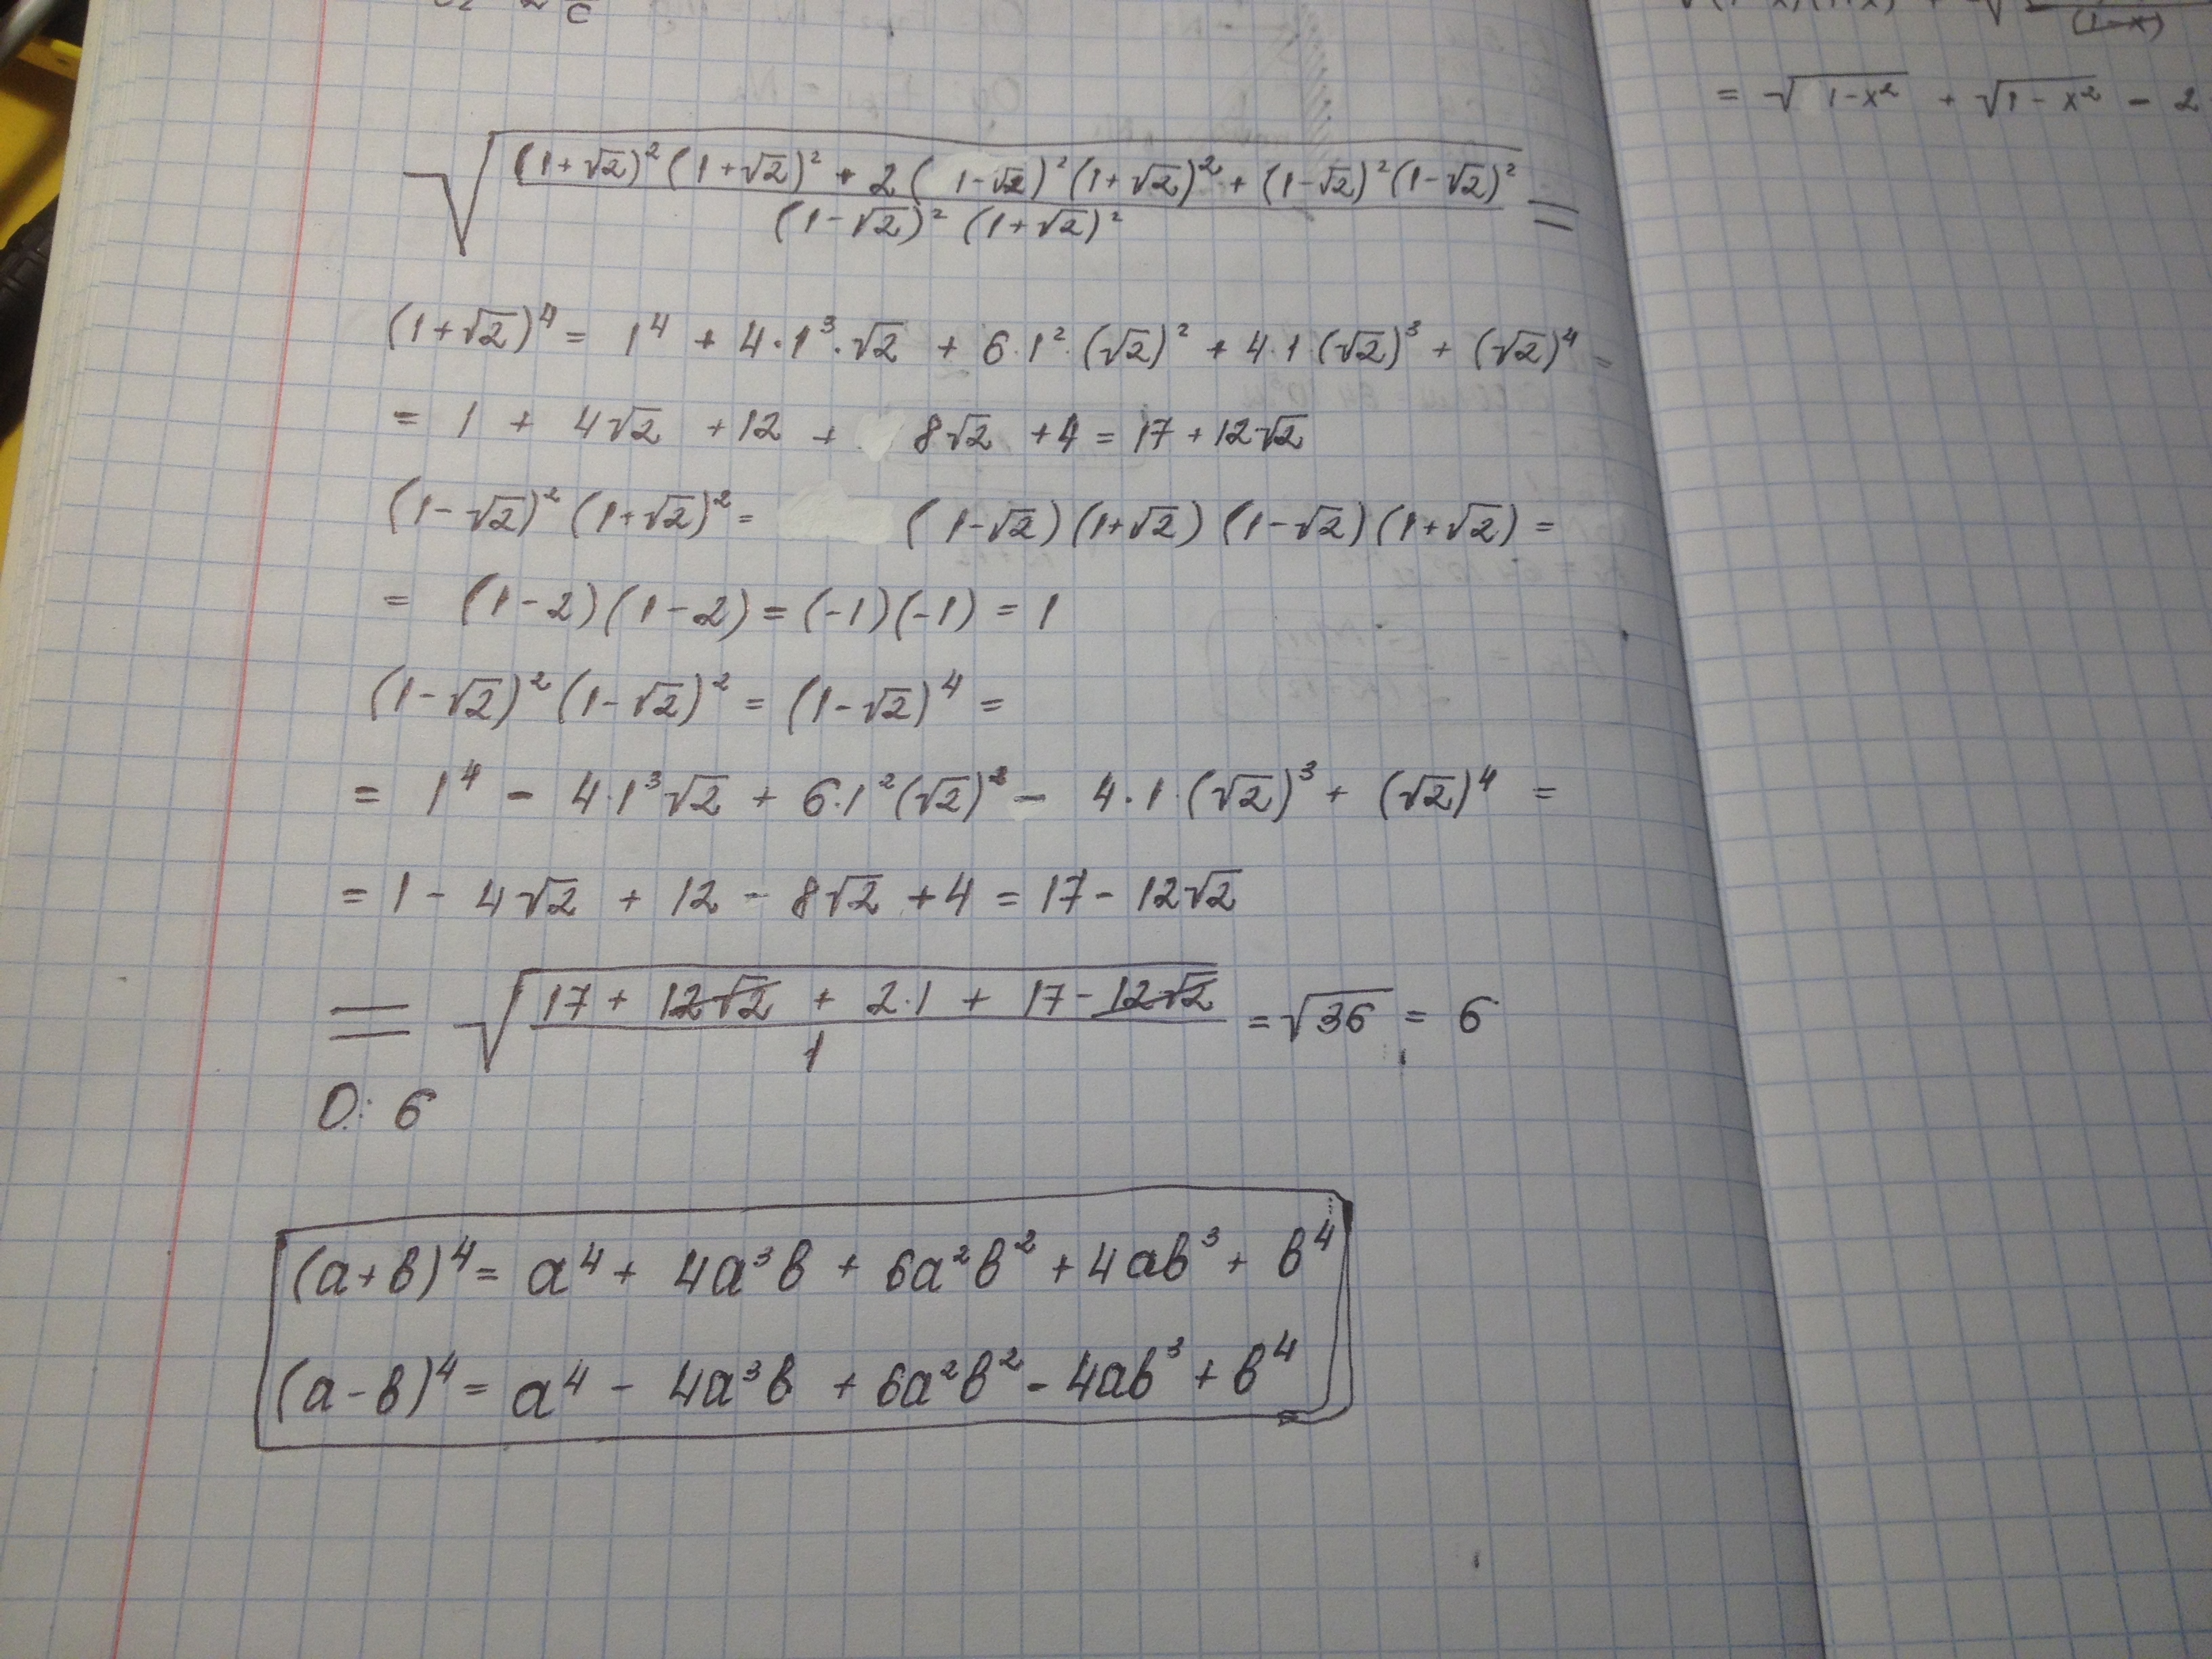 √((1+√2)²(1+√2)² + 2(1-√2)²(1+√2)² + (1-√2)²(1-√2)² / (1-√2)²(1+√2)²) =
(1+√2)⁴ = 1⁴ + 4·1³·√2 + 6·1²·(√2)² + 4·1·(√2)³ + (√2)⁴ =
= 1 + 4√2 + 12 + 8√2 + 4 = 17 + 12√2
(1-√2)²(1+√2)² = (1-√2)(1+√2)(1-√2)(1+√2) =
= (1-2)(1-2) = (-1)(-1) = 1
(1-√2)²(1-√2)² = (1-√2)⁴ =
= 1⁴ - 4·1³√2 + 6·1²(√2)² - 4·1·(√2)³ + (√2)⁴ =
= 1 - 4√2 + 12 - 8√2 + 4 = 17 - 12√2
= √(17 + 12√2 + 2·1 + 17 - 12√2 / 1) = √36 = 6
О: 6
(a+b)⁴ = a⁴ + 4a³b + 6a²b² + 4ab³ + b⁴
(a-b)⁴ = a⁴ - 4a³b + 6a²b² - 4ab³ + b⁴
(1-x)
= √1-x² + √1-x² - 2